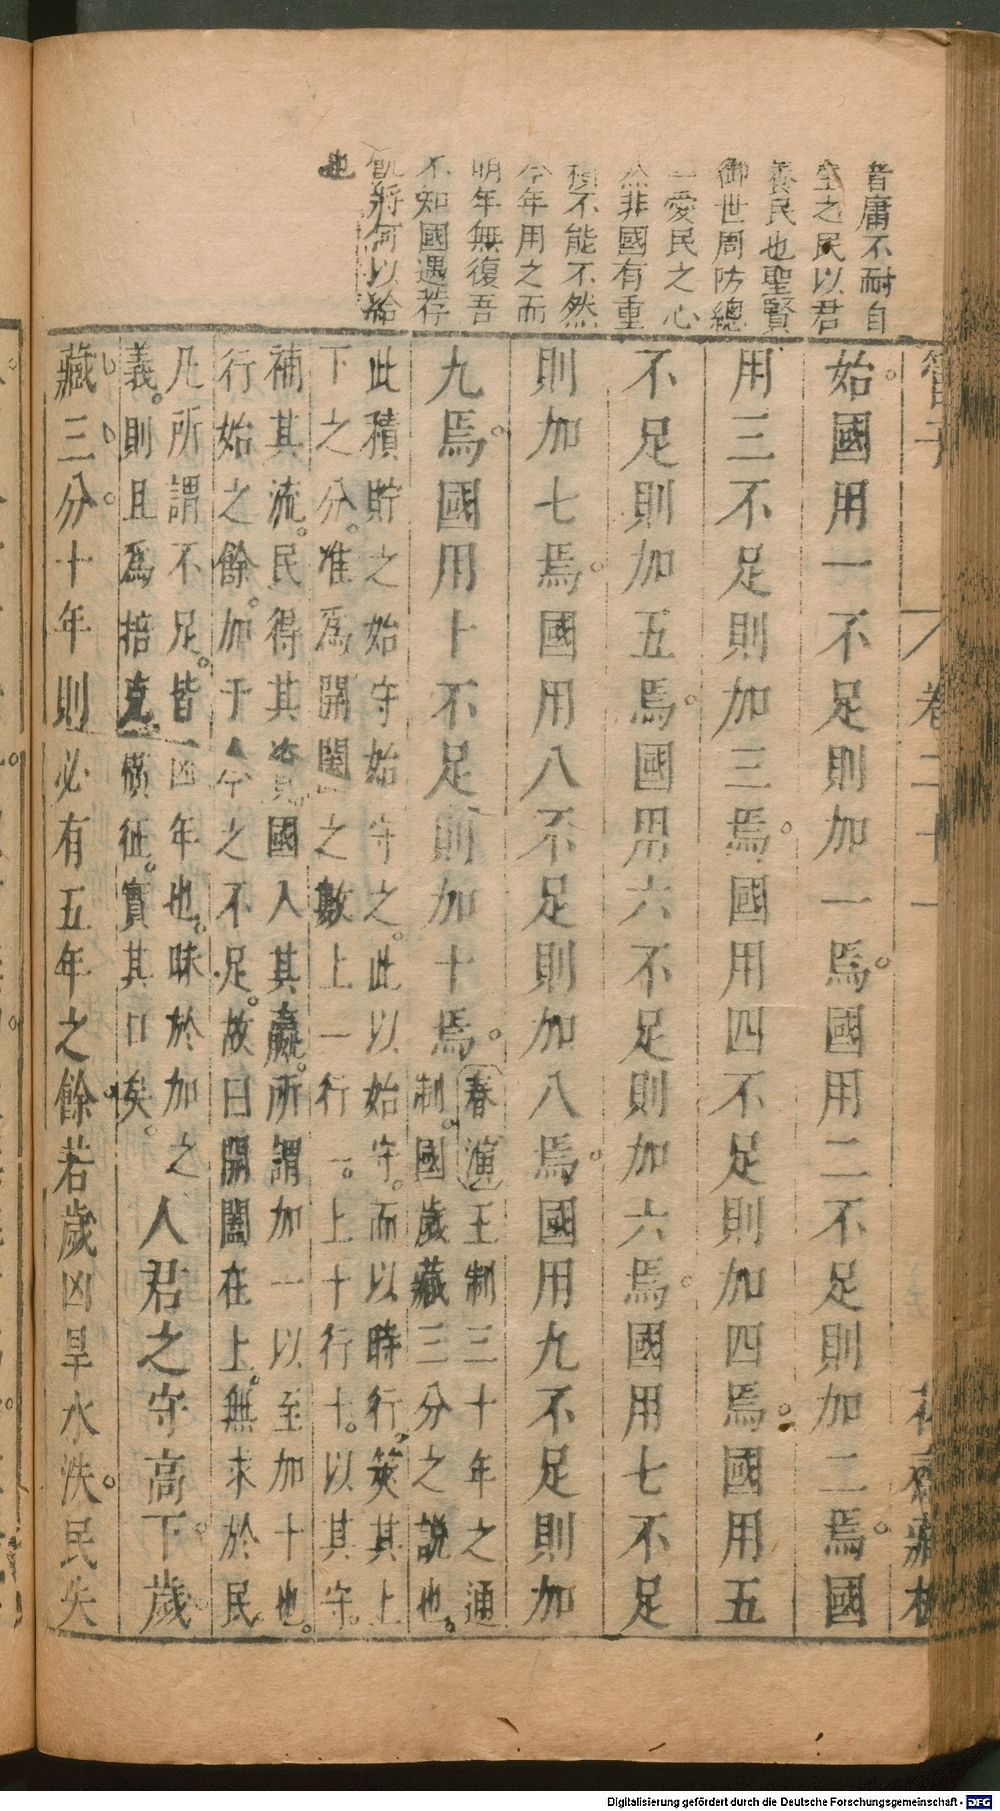 昔庸不耐自
全之民以君
養民也聖賢
御世周防總
一愛民之心
然非國有重
積不能不然
今年用之而
明年無復吾
不知國遇荐
飢將何以給
也
管子 卷二十一 花齋藏板
始國用一不足則加一焉國用二不足則加二焉國
用三不足則加三焉國用四不足則加四焉國用五
不足則加五焉國用六不足則加六焉國用七不足
則加七焉國用八不足則加八焉國用九不足則加
九焉國用十不足則加十焉春演王制三十年之通
制國歲藏三分之說也
此積貯之始守始守之此以始守而以時行筴其上
下之分准為開闔之數上一行一上十行十以其守
補其流民得其資國人其贏所謂加一以至加十也
行始之餘加于今之不足故曰開闔在上無求於民
凡所謂不足皆凶年也昧於加之
義則且為掊克橫征實其口矣人君之守高下歲
藏三分十年則必有五年之餘若歲凶旱水泆民失
Digitalisierung gefördert durch die Deutsche Forschungsgemeinschaft - DFG